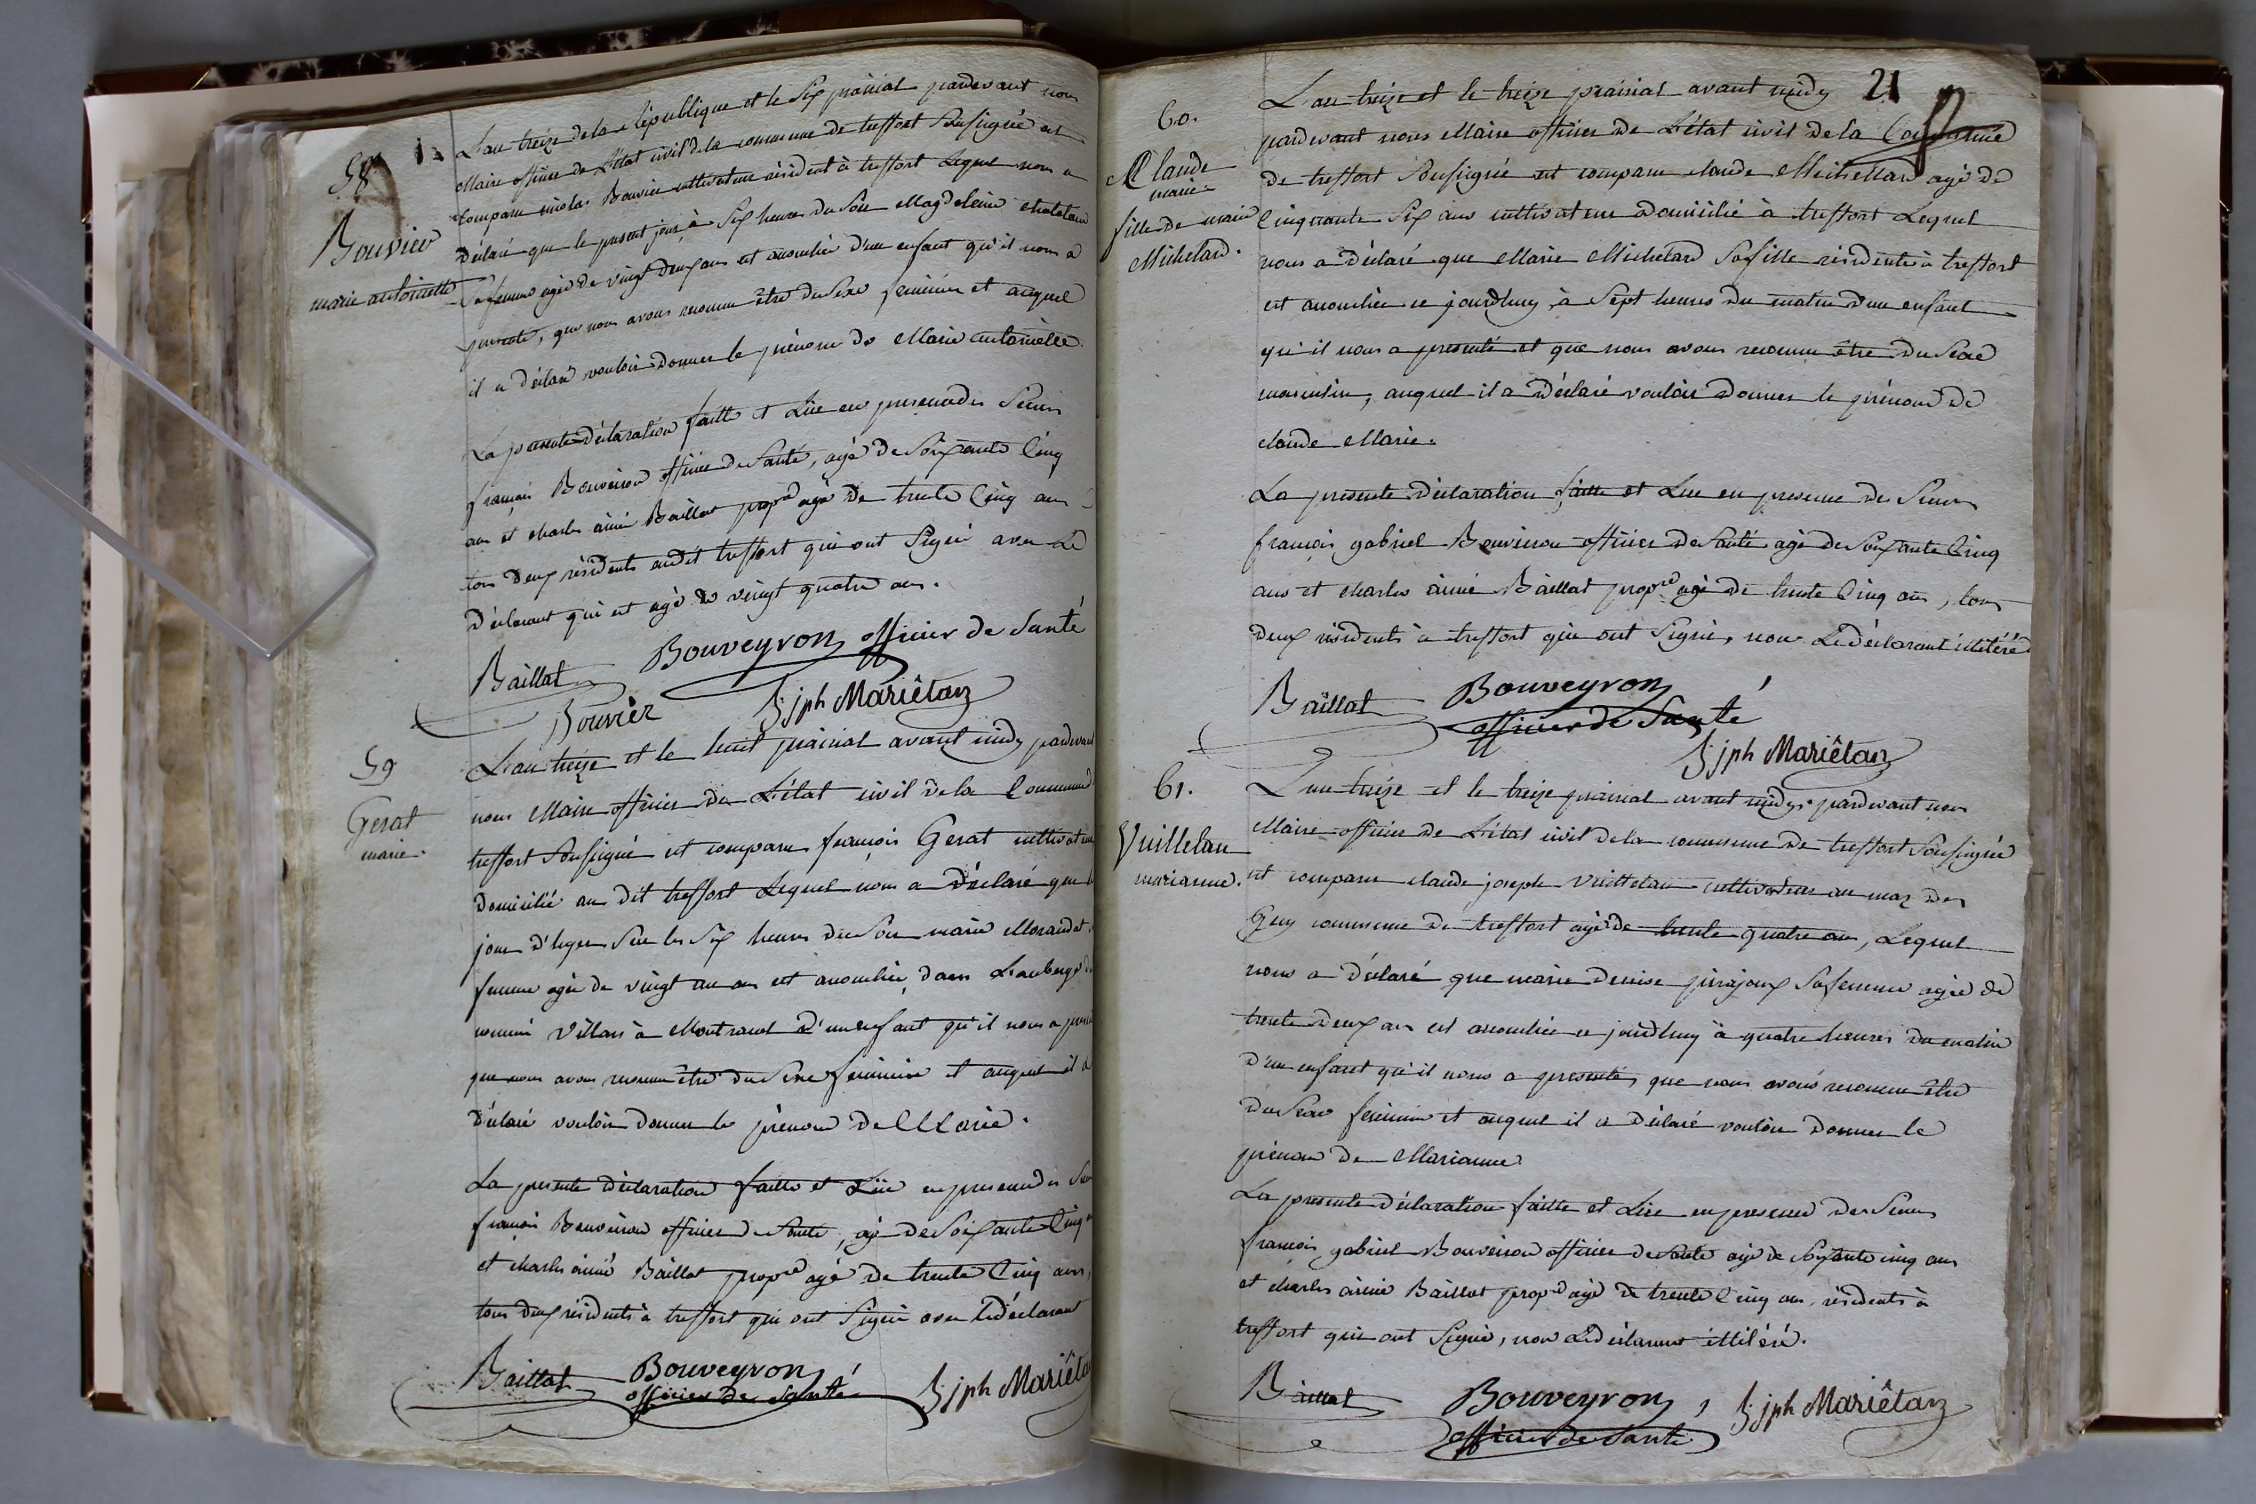 58
Bouvier
marie antoinette
L'an treize de la République et le Six prairial pardevant nous
Maire officier de L'état civil de la commune de treffort Soussigné est
comparu nicolas Bouvier cultivateur résident à treffort Lequel nous a
déclaré que le present jour à Six heures du Soir Magdeleine chatelard
Sa femme agée de vingt deux ans est accouchée d'un enfant qu'il nous a
presenté, que nous avons reconnu être du Sexe feminin et auquel
il a déclaré vouloir donner le prénom de Marie antoinette.
La presente déclaration faitte et Lüe en presence des Sieurs
françois Bouveiron officier de Santé, agé de Soixante Cinq
ans et charles aimé Baillat propre agé de trente Cinq ans
tous deux résidents audit treffort qui ont Signé avec Le
déclarant qui est agé de vingt quatre ans.
Baillat Bouveyron officier de Santé
Bouvier Jph Mariêtan
59
Gerat
marie.
L'an treize et le huit prairial avant midy pardevant
nous Maire officier de L'état civil de la Commune
treffort Soussigné est comparu françois Gerat cultivateur
domicilié au dit treffort Lequel nous a déclaré que le
jour d'hyer Sur les Six heures du Soir marie Morandat
femme agée de vingt un ans est accouchée, dans L'auberge du
nommé Villars à Montracol d'un enfant qu'il nous a presenté
que nous avons reconnu être du Sexe feminin et auquel il a
déclaré vouloir donner le prénom de Marie.
La presente déclaration faitte et Lüe en presence des Sieurs
françois Bouveiron officier de Santé, agé de Soixante Cinq
et charles aimé Baillat propre agé de trente Cinq ans,
tous deux résidents à treffort qui ont Signé avec Le déclarant
Baillat Bouveyron Jph Mariêtan
officier de Santé
21
60.
Claude
marie
fille de marie
Michelard.
L'an treize et le treize prairial avant midy
pardevant nous Maire officier de L'état civil de la Commune
de treffort Soussigné est comparu claude Michellard agé de
Cinquante Six ans cultivateur domicilié à treffort Lequel
nous a déclaré que Marie Michelard Sa fille résidente à treffort
est accouchée ce jourdhuy à Sept heures du matin d'un enfant
qu'il nous a presenté et que nous avons reconnu être du Sexe
masculin, auquel il a déclaré vouloir donner le prénom de
claude Marie.
La presente déclaration faitte et Lue en presence des Sieurs
françois gabriel Bouveiron officier de Santé agé de Soixante Cinq
ans et charles aimé Baillat propre agé de trente Cinq ans, tous
deux résidents à treffort qui ont Signé, non Le déclarant illitéré
Baillat Bouveyron
officier de Santé
Jph Mariêtan
61.
Vuilletan
marianne.
L'an treize et le treize prairial avant midy pardevant nous
Maire officier de L'état civil de la commune de treffort Soussigné
est comparu claude joseph Vuilletan cultivateur au maz des
Guy commune de treffort agé de trente quatre ans, Lequel
nous a déclaré que marie denise pirajoux Sa femme agée de
trente deux ans est accouchée ce jourdhuy à quatre heures du matin
d'un enfant qu'il nous a presenté, que nous avons reconnu être
du Sexe feminin et auquel il a déclaré vouloir donner le
prénom de Marianne.
La presente déclaration faitte et Lüe en presence des Sieurs
françois gabriel Bouveiron officier de Santé agé de Soixante cinq ans
et charles aimé Baillat propre agé de trente Cinq ans, résidents à
treffort qui ont Signé, non Le déclarant illitéré.
Baillat Bouveyron Jph Mariêtan
officier de Santé